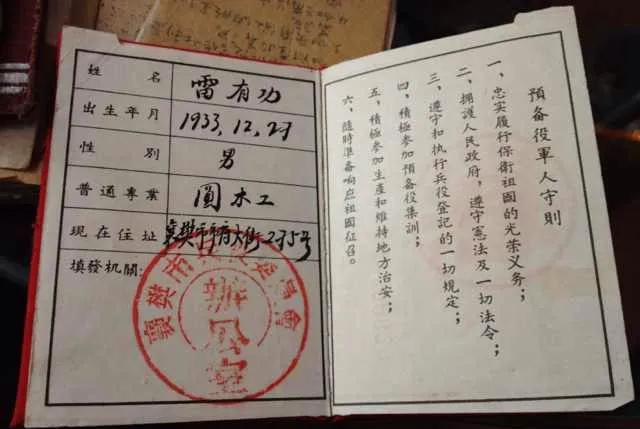 姓名 雷有功
出生年月 1933.12.27
性别 男
普通專業 圓木工
現在住址 襄樊市市府大街275号
填發机關:
襄樊市
預备役軍人守則
一、忠实履行保衛祖國的光荣义务;
二、擁護人民政府,遵守憲法及一切法令;
三、遵守和执行兵役登記的一切規定;
四、積極参加預备役集訓;
五、積極参加生產和維持地方治安;
六、隨時準备响应祖國征召。